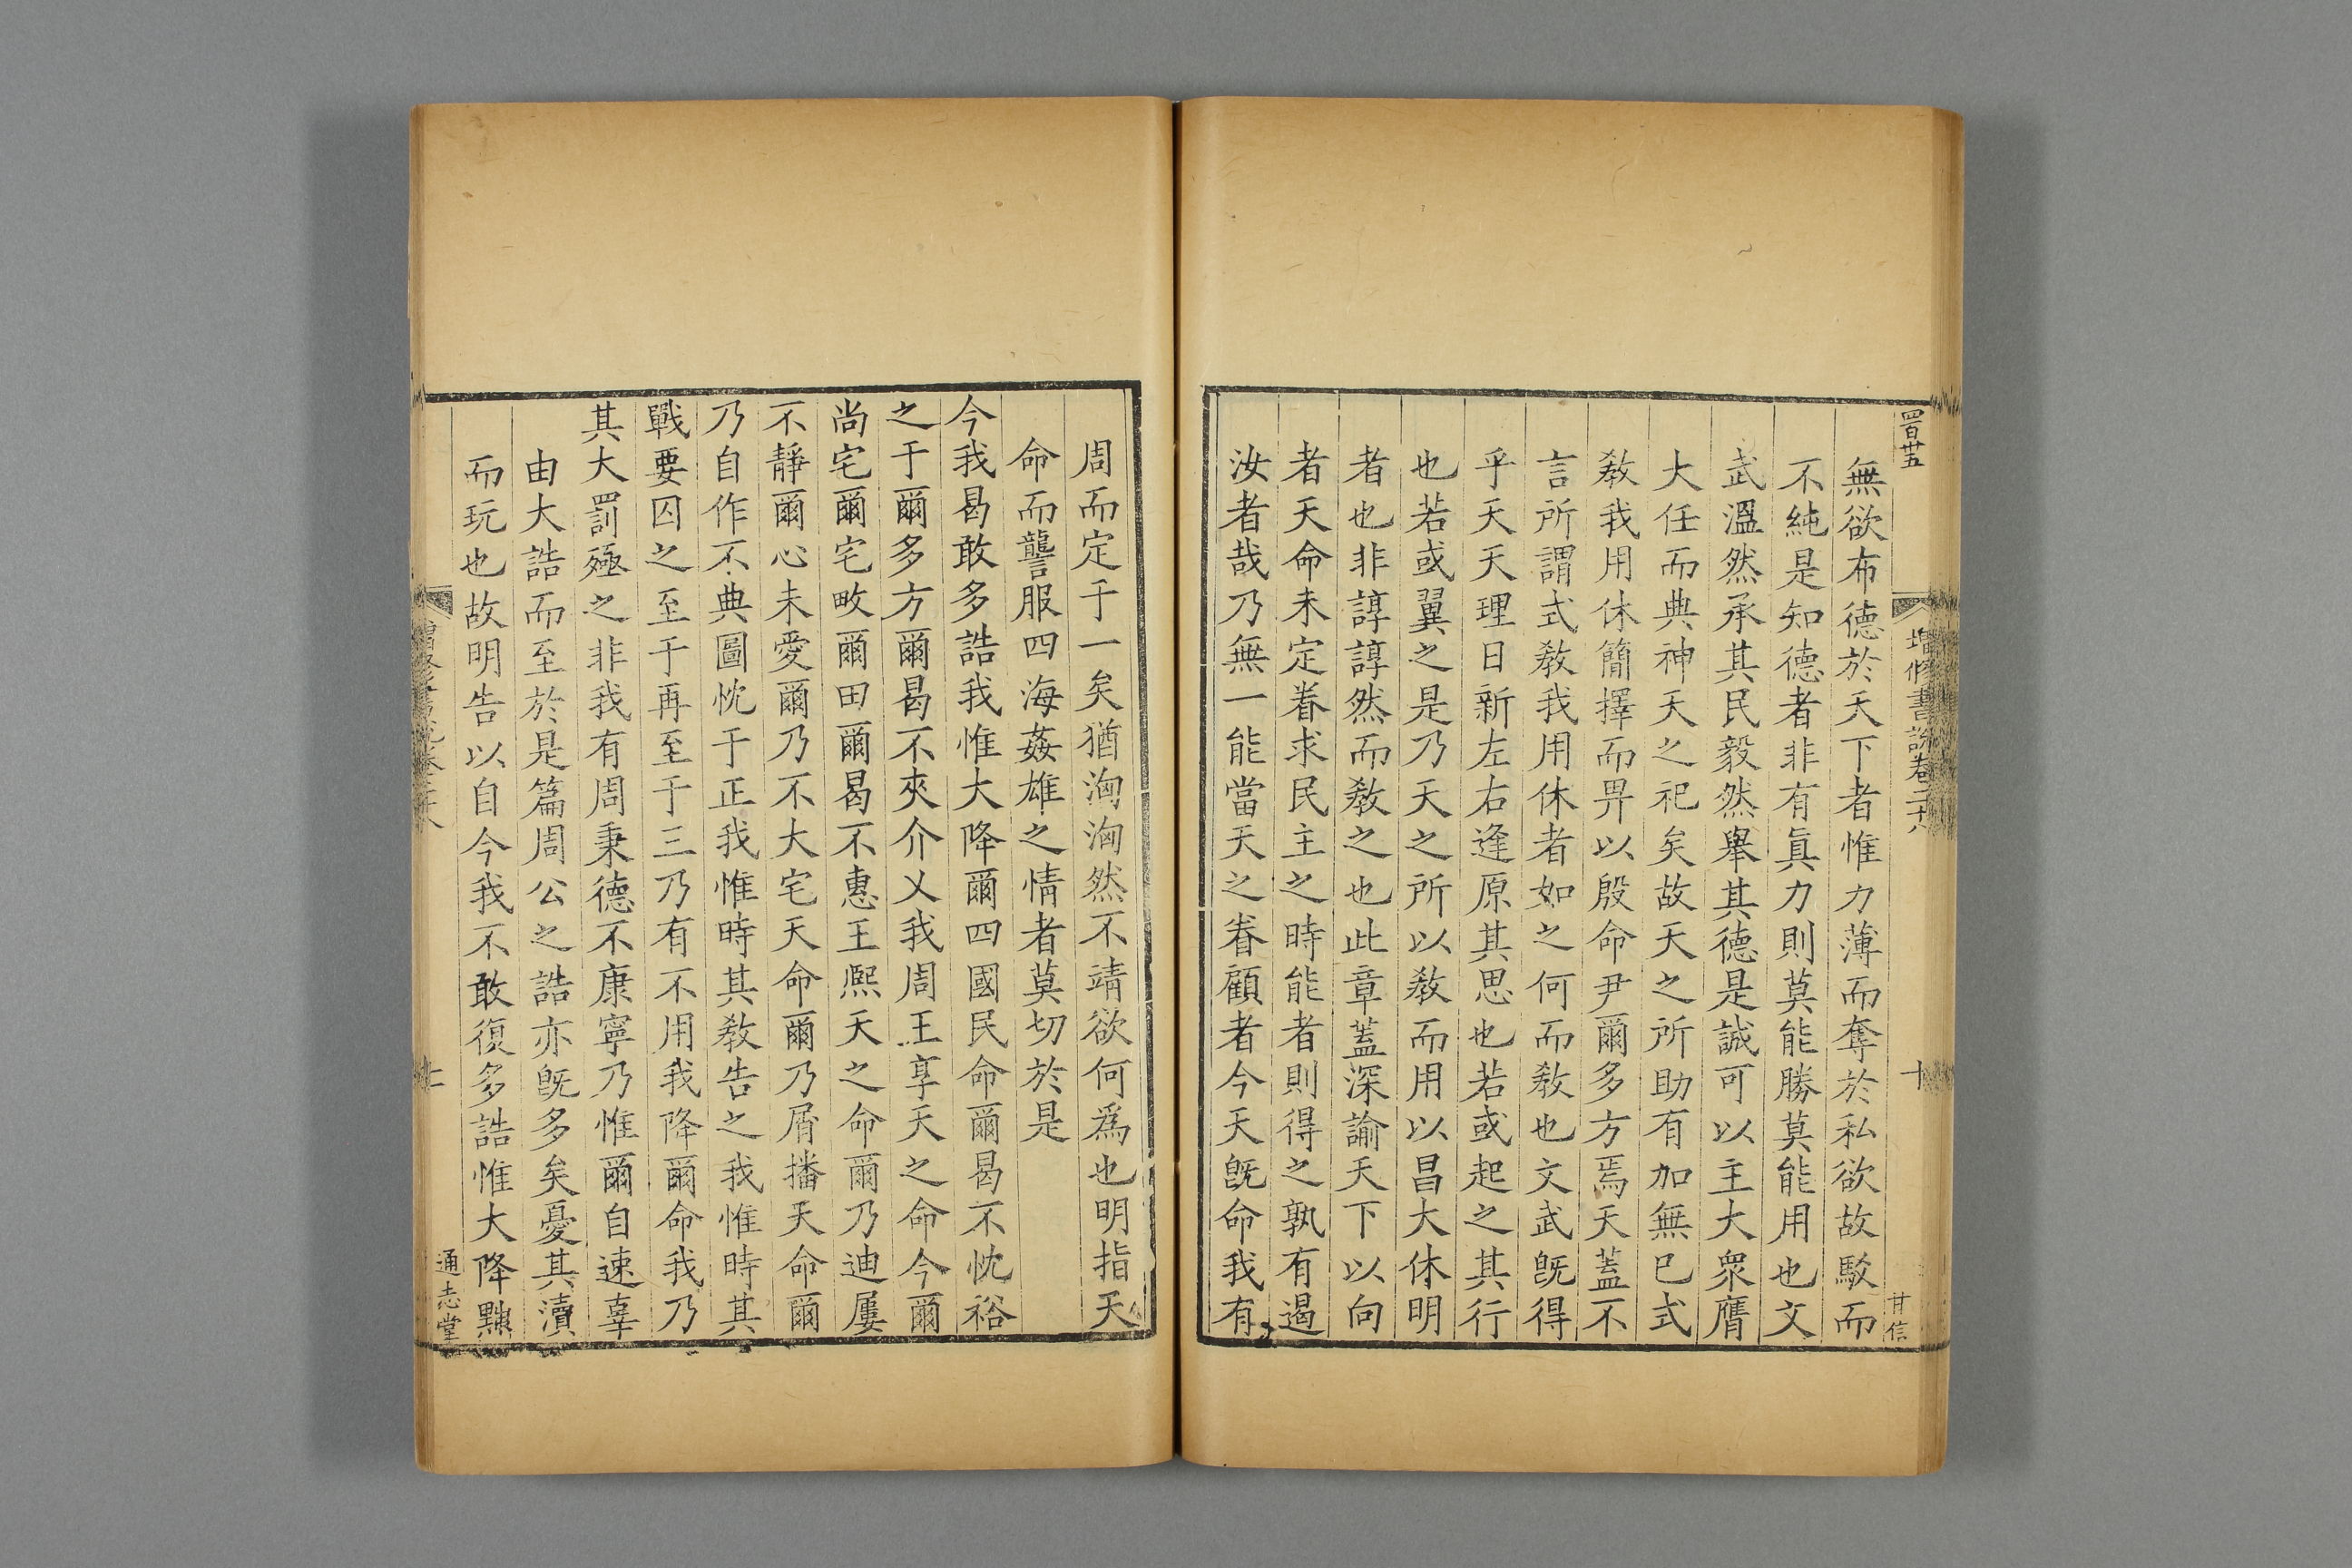 四百廿五
增修書說卷二十八
十
甘信
無欲布德於天下者惟力薄而奪於私欲故駁而
不純是知德者非有眞力則莫能勝莫能用也文
武溫然承其民毅然舉其德是誠可以主大衆膺
大任而典神天之祀矣故天之所助有加無已式
敎我用休簡擇而畀以殷命尹爾多方焉天蓋不
言所謂式敎我用休者如之何而敎也文武旣得
乎天天理日新左右逢原其思也若或起之其行
也若或翼之是乃天之所以敎而用以昌大休明
者也非諄諄然而敎之也此章蓋深諭天下以向
者天命未定眷求民主之時能者則得之孰有遏
汝者哉乃無一能當天之眷顧者今天旣命我有
周而定于一矣猶洶洶然不靖欲何爲也明指天
命而讋服四海姦雄之情者莫切於是
今我曷敢多誥我惟大降爾四國民命爾曷不忱裕
之于爾多方爾曷不夾介乂我周王享天之命今爾
尚宅爾宅畋爾田爾曷不惠王熙天之命爾乃迪屢
不靜爾心未愛爾乃不大宅天命爾乃屑播天命爾
乃自作不典圖忱于正我惟時其敎告之我惟時其
戰要囚之至于再至于三乃有不用我降爾命我乃
其大罰殛之非我有周秉德不康寧乃惟爾自速辜
由大誥而至於是篇周公之誥亦旣多矣憂其瀆
而玩也故明告以自今我不敢復多誥惟大降黜
通志堂